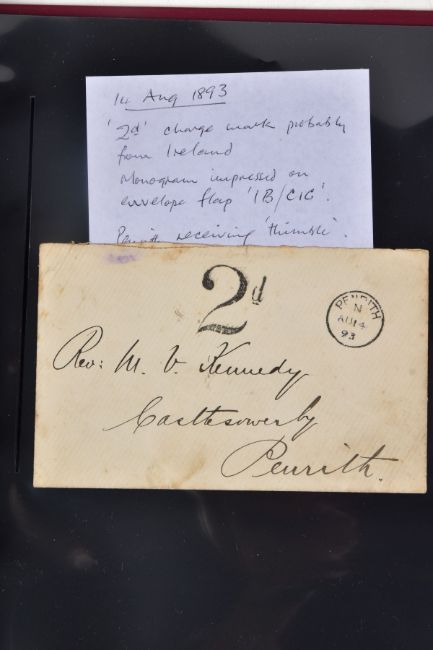 14 Aug 1893
'2d' charge mark probably
from Ireland
Monogram impressed on
envelope flap 'IB/CIC'.
Penrith receiving 'thimble'.
2d
PENRITH
N
AU 14
93
Rev: M. V. Kennedy
Castlesowerby
Penrith.